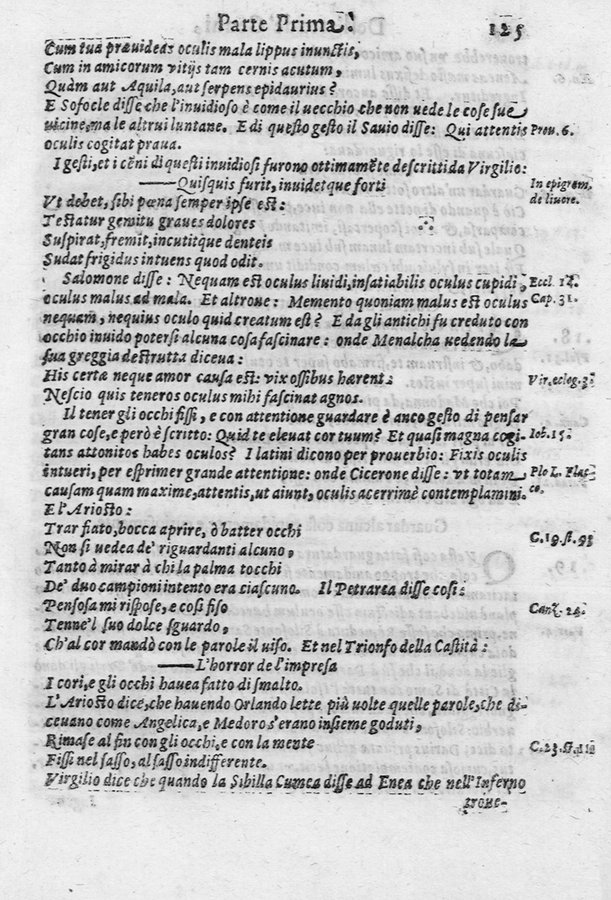 Parte Prima. 125
Cum tua præuideas oculis mala lippus inunctis,
Cum in amicorum vitijs tam cernis acutum,
Quàm aut Aquila, aut serpens epidaurius?
E Sofocle disse che l'inuidioso è come il uecchio che non uede le cose sue
uicine, ma le altrui luntane. E di questo gesto il Sauio disse: Qui attentis Prou. 6.
oculis cogitat praua.
I gesti, et i cēni di questi inuidiosi furono ottimamēte descritti da Virgilio:
——Quisquis furit, inuidetque forti In epigram.
Vt debet, sibi pœna semper ipse est: de liuore.
Testatur gemitu graues dolores
Suspirat, fremit, incutitq́ue denteis
Sudat frigidus intuens quod odit.
Salomone disse: Nequam est oculus liuidi, insatiabilis oculus cupidi, Eccl. 14.
oculus malus ad mala. Et altroue: Memento quoniam malus est oculus Cap. 31.
nequam, nequius oculo quid creatum est? E da gli antichi fu creduto con
occhio inuido potersi alcuna cosa fascinare: onde Menalcha uedendo la
sua greggia destrutta diceua:
His certæ neque amor causa est: vix ossibus hærent: Vir. eclog. 3.
Nescio quis teneros oculus mihi fascinat agnos.
Il tener gli occhi fissi, e con attentione guardare è anco gesto di pensar
gran cose, e però è scritto: Quid te eleuat cor tuum? Et quasi magna cogi- Iob. 15.
tans attonitos habes oculos? I latini dicono per prouerbio: Fixis oculis
intueri, per esprimer grande attentione: onde Cicerone disse: vt totam Pro L. Flac-
causam quam maxime, attentis, ut aiunt, oculis acerrimè contemplamini. co.
E l'Ariosto:
Trar fiato, bocca aprire, ò batter occhi C. 19. st. 93
Non si uedea de' riguardanti alcuno,
Tanto à mirar à chi la palma tocchi
De' duo campioni intento era ciascuno. Il Petrarca disse così:
Pensosa mi rispose, e così fiso Canz. 24.
Tenne'l suo dolce sguardo,
Ch'al cor mandò con le parole il uiso. Et nel Trionfo della Castità:
——L'horror de l'impresa
I cori, e gli occhi hauea fatto di smalto.
L'Ariosto dice, che hauendo Orlando lette più uolte quelle parole, che di-
ceuano come Angelica, e Medoro s'erano insieme goduti,
Rimase al fin con gli occhi, e con la mente C. 23. st. 111
Fissi nel sasso, al sasso indifferente.
Virgilio dice che quando la Sibilla Cumea disse ad Enea che nell'Inferno
troue-